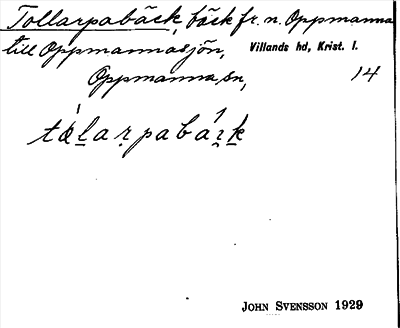 Tollarpabäck, bäck fr. n. Oppmanna
till Oppmannasjön, Villands hd, Krist. l.
Oppmanna sn, 14
tålarpabärk
JOHN SVENSSON 1929